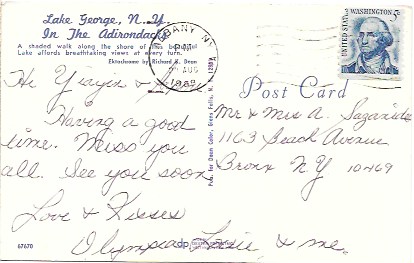 Lake George, N. Y.
In The Adirondacks
A shaded walk along the shore of this beautiful
Lake affords breathtaking views at every turn.
Ektachrome by Richard K. Dean
ALBANY NY
PM
AUG
UNITED STATES
WASHINGTON 5c
Post Card
Hi
Having a good
time. Miss you
all. See you soon
Love & Kisses
Olympia, & me.
Mr & Mrs A.
1163 Beach Avenue
Bronx NY 10469
Pub. by Dean Color, Glens Falls, N. Y.
67670
dp